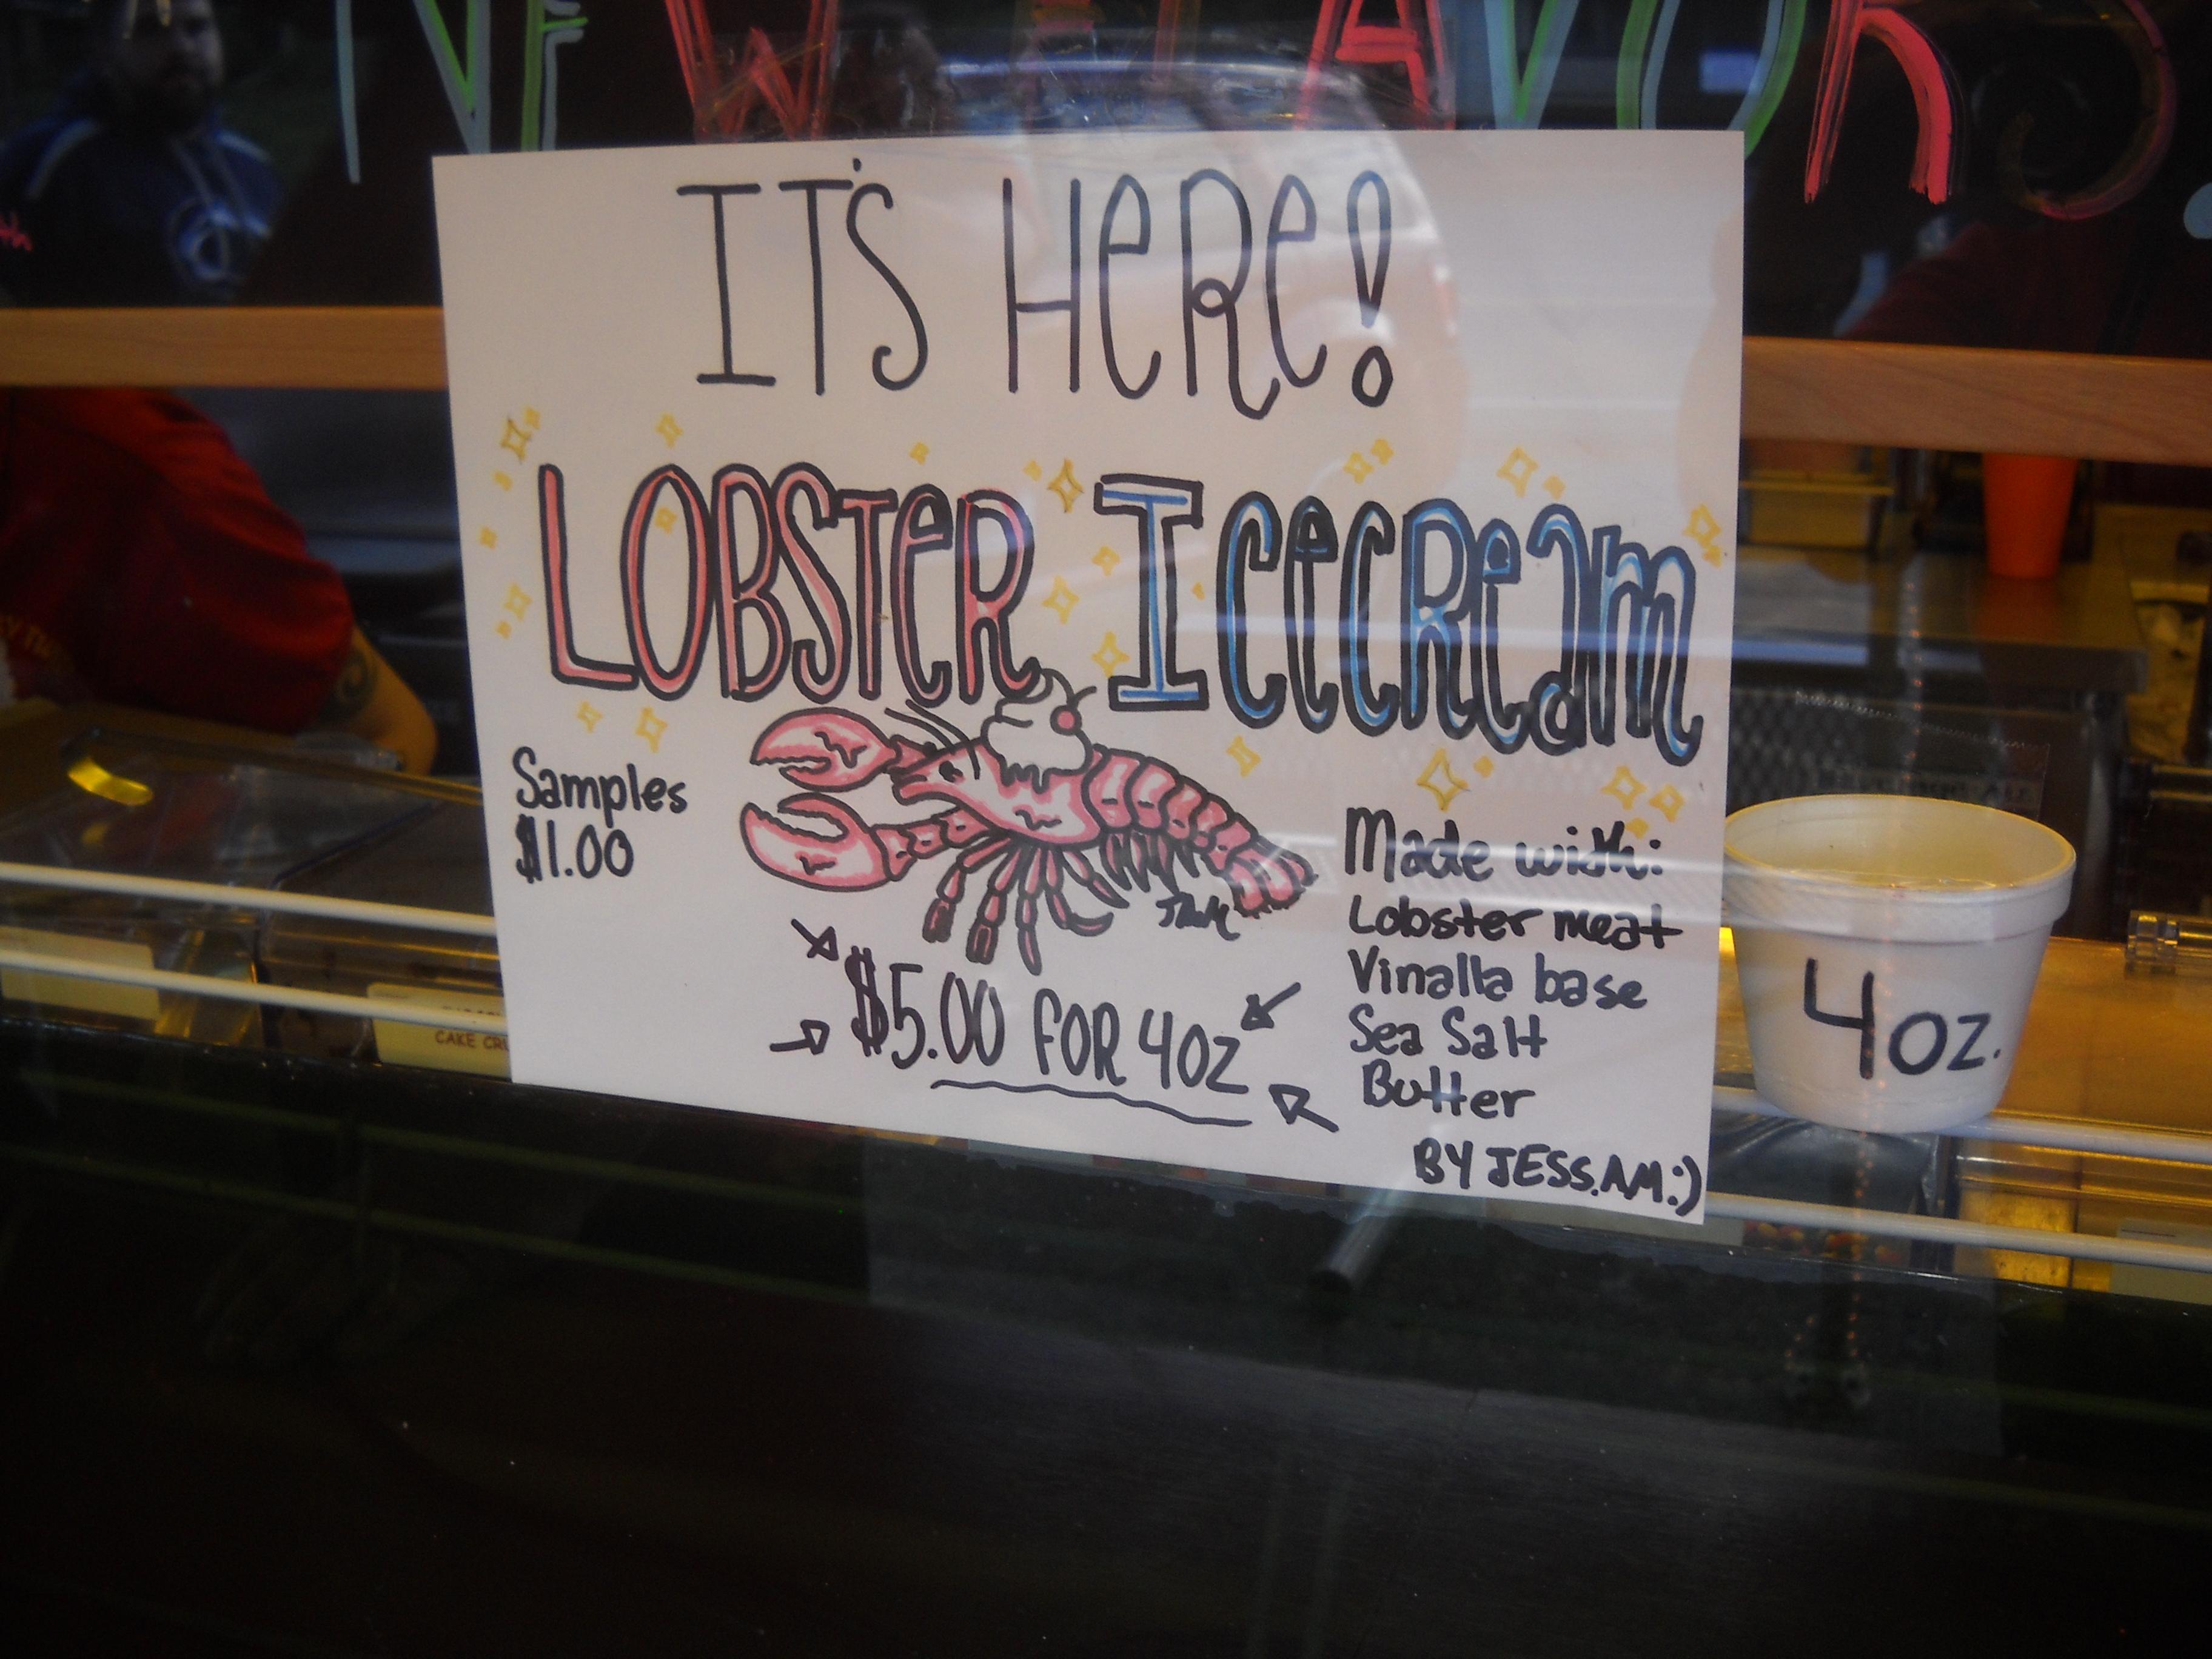 NEW FLAVORS
IT'S HERE!
LOBSTER ICECREAM
Samples
$1.00
$5.00 FOR 4OZ
Made with:
Lobster meat
Vinalla base
Sea Salt
Butter
BY JESS.AM:)
4oz.
CAKE